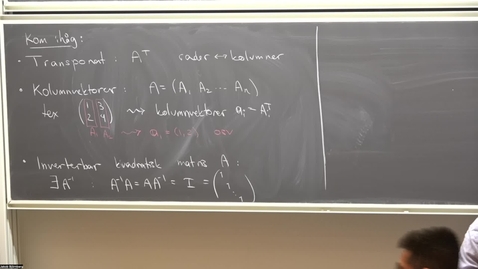 Kom ihåg:
• Transponat: Aᵀ rader ↔ kolumner
• Kolumnvektorer: A = (A₁ A₂ ⋯ Aₙ)
tex (1 3
2 4) ⇝ kolumnvektor
A₁ A₂ ⇝ osv
• Inverterbar kvadratisk matris A:
∃ A⁻¹ : A⁻¹A = AA⁻¹ = I = (1 1 ⋱ 1)